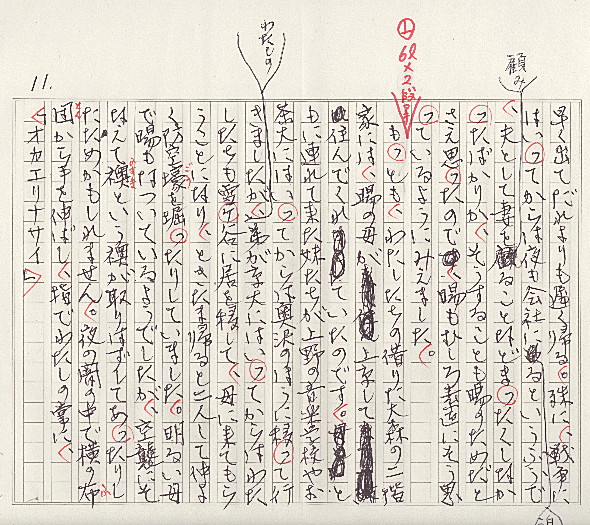 早く出てだれよりも遅く帰る。殊に、戦争に
はいってからは夜も会社にるというふうで
、夫として妻を顧みることなどまったくしなか
ったばかりか、そうすることも暘のためだと
さえ思ったので、暘もむしろ素直にそう思
っているようにみえました。
もっとも、わたしたちの借りた大森の二階
家には、暘の母が上京して
住んでくれていたのです。と
もに連れて来た妹たちが上野の音楽学校やお
茶大にはいってからは奥沢のほうに移って行
きましたが、わたしの弟が京大にはいってからはわた
したちも雪ヶ谷に居を移して、母に来てもら
うことになり、ときたま帰ると二人して仲よ
く防空壕を掘ったりしていました。明るい母
で暘もなついているようでしたが、空襲にそ
なえて襖という襖が取りはずしてあったりし
たためかもしれません。夜の闇の中で横の布
団から手を伸ばし、指でわたしの掌に、
「オカエリナサイ」
11.